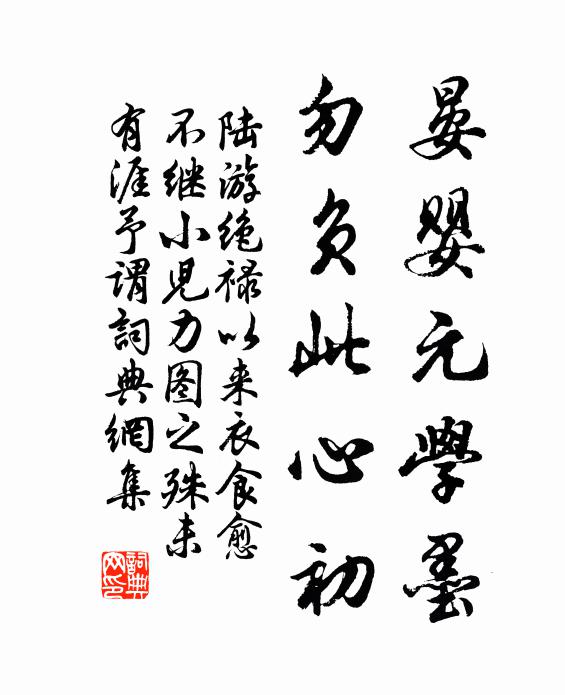 晏嬰元學墨
勿負此心初
陆游绝禄以来衣食愈
不继小児力图之殊未
有涯予谓詞典網集
詞典网印